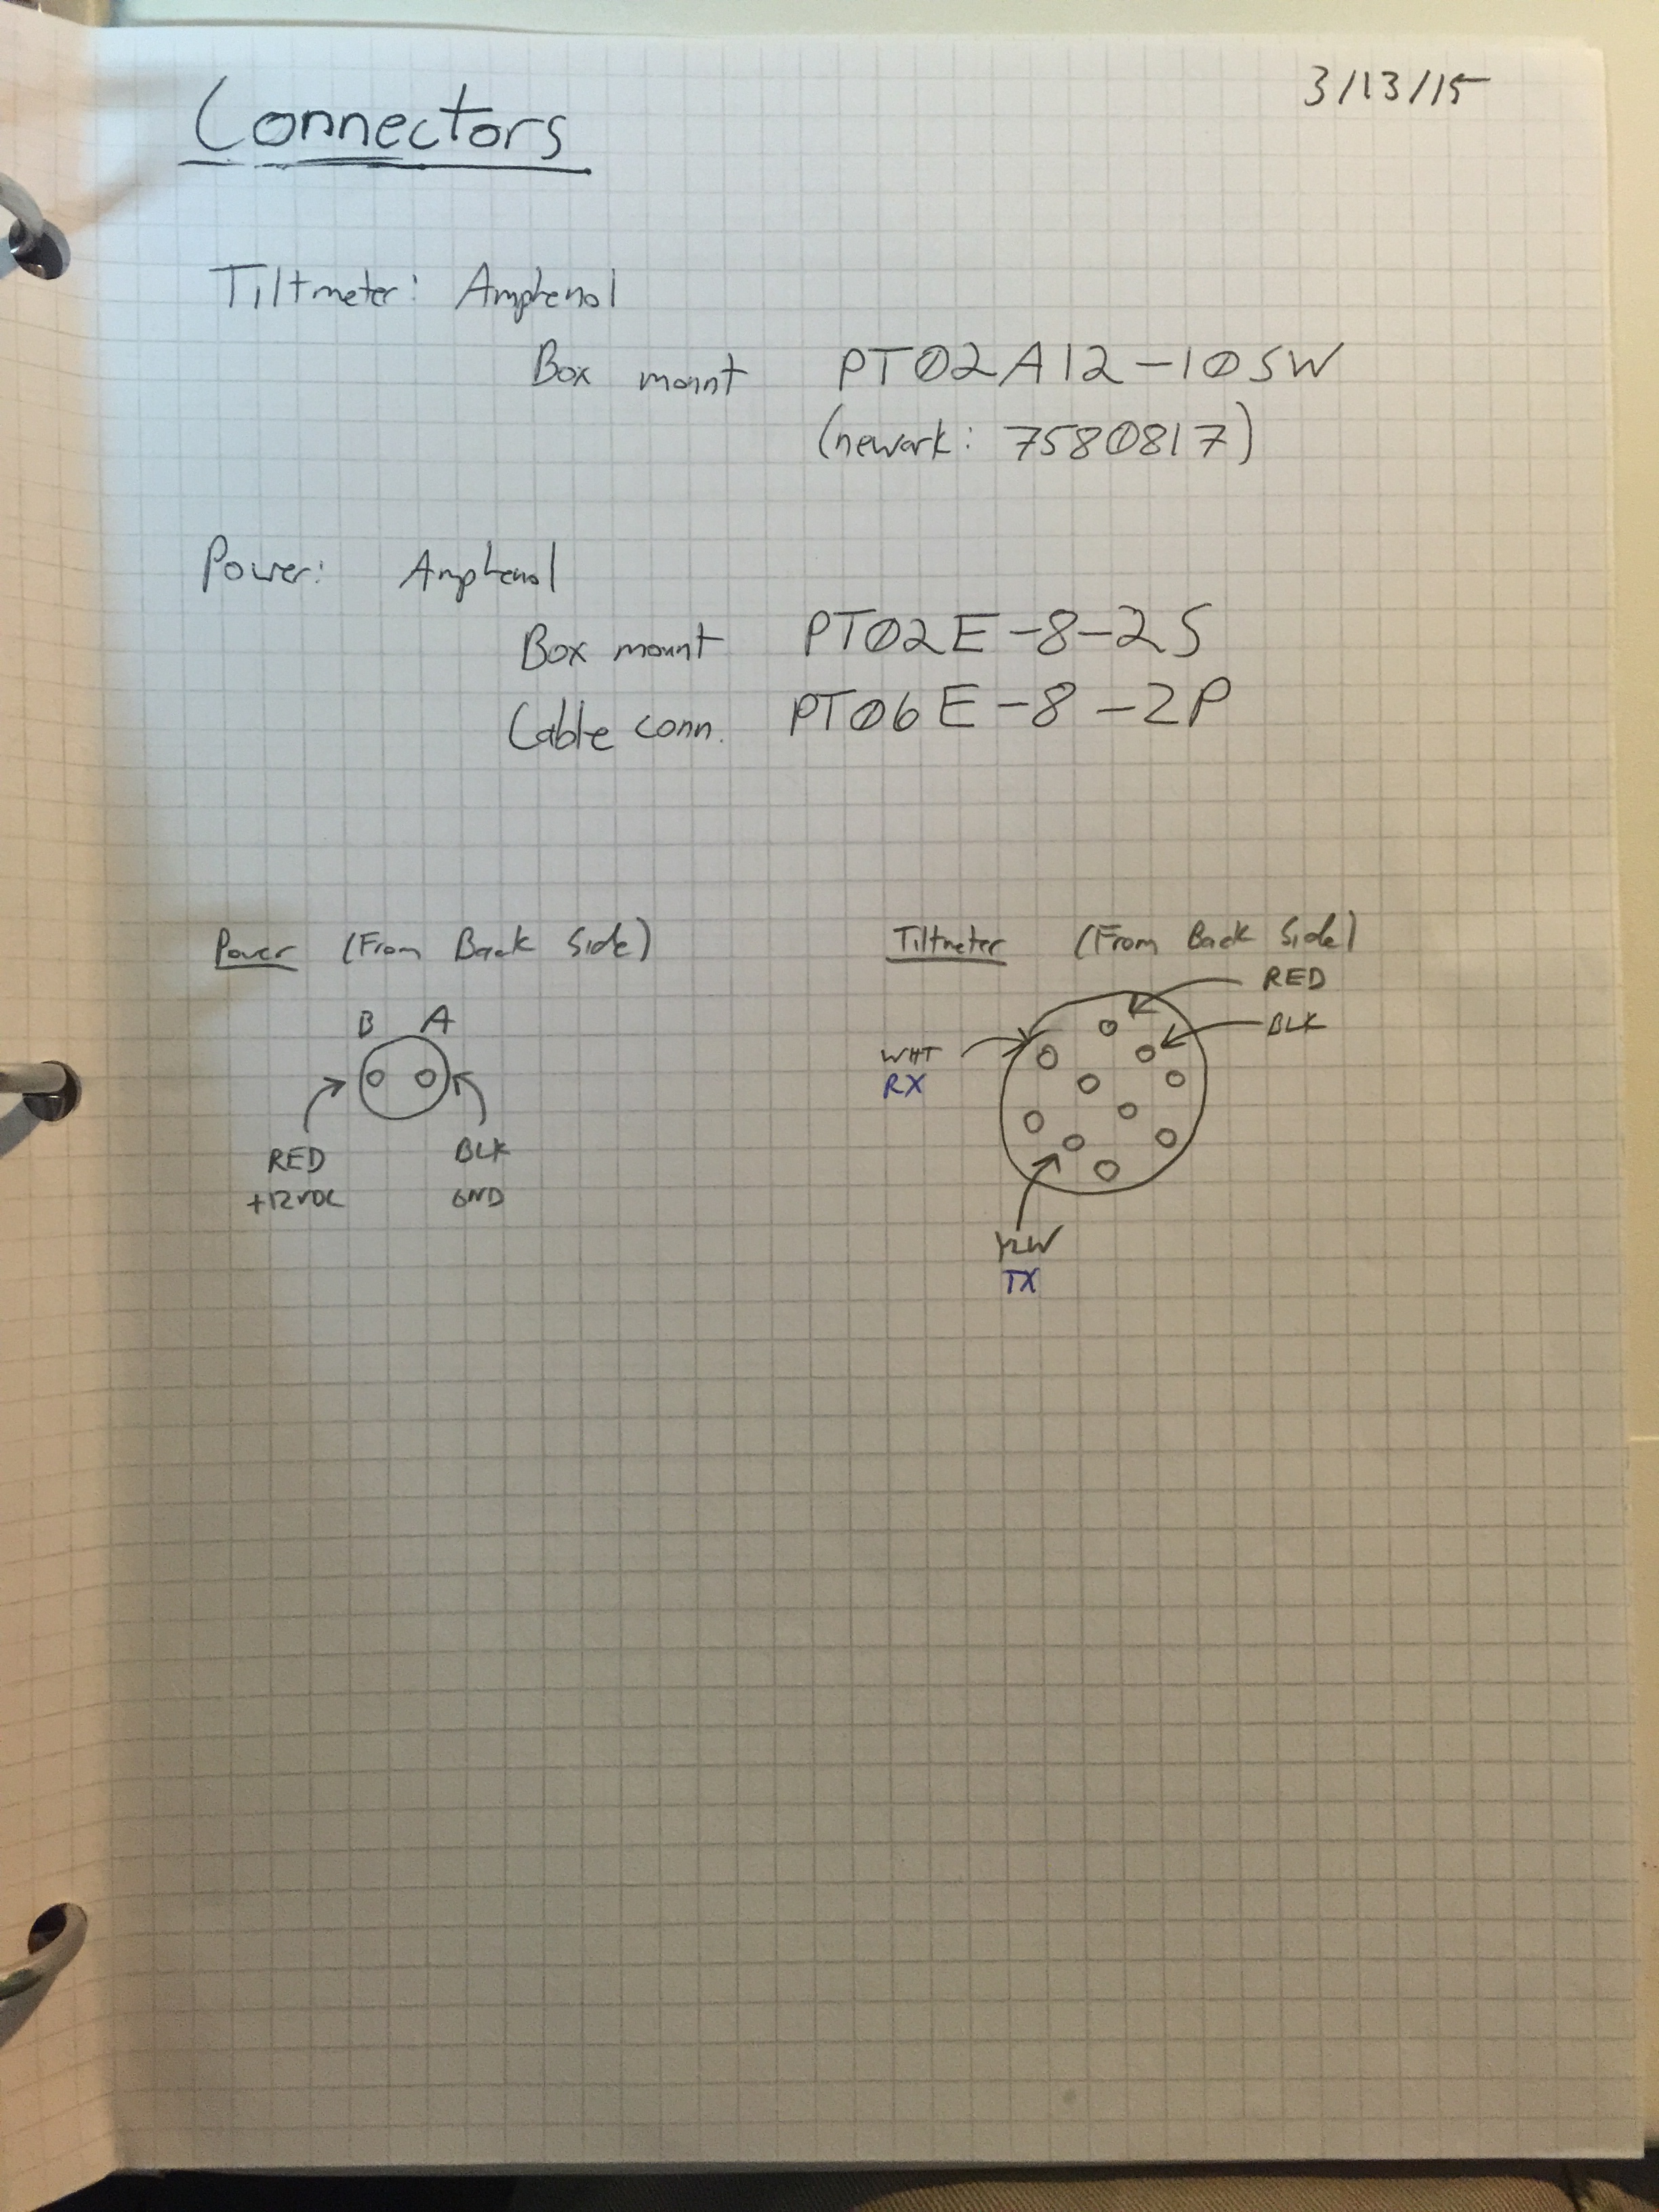 3/13/15
Connectors
Tiltmeter: Amphenol
Box mount PT02A12-10SW
(newark: 7580817)
Power: Amphenol
Box mount PT02E-8-2S
Cable conn. PT06E-8-2P
Power (From Back Side)
B A
RED BLK
+12VDC GND
Tiltmeter (From Back Side)
RED
BLK
WHT
RX
YLW
TX